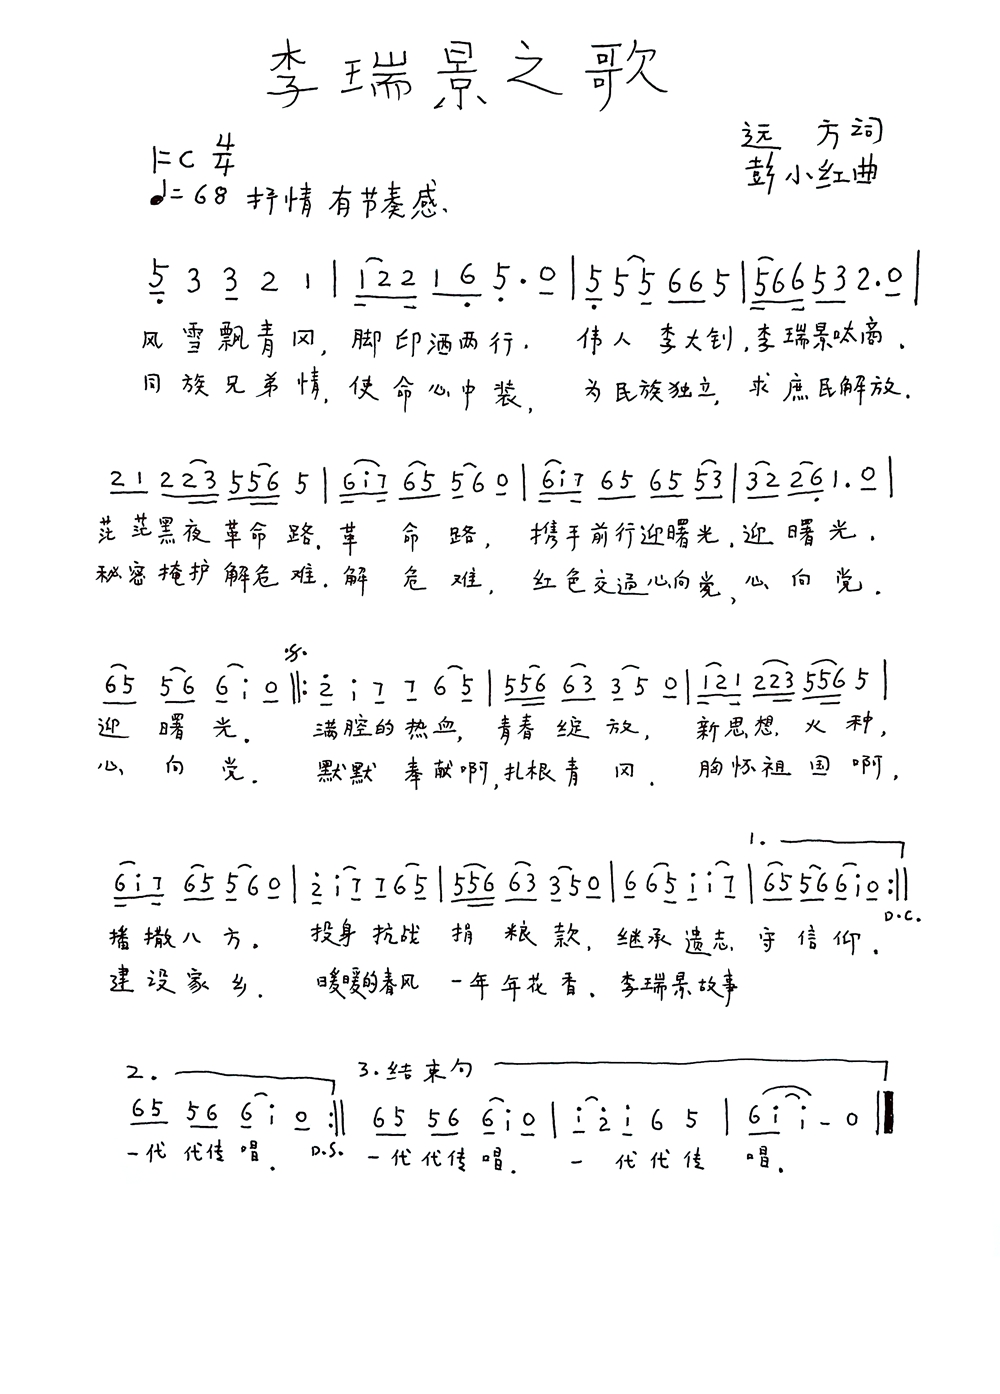 李瑞景之歌
远 方词
1=C 4/4
彭小红曲
♩=68 抒情 有节奏感.
5 3 3 2 1 | 1 2 2 1 6 5 . 0 | 5 5 5 6 6 5 | 5 6 6 5 3 2 . 0 |
风 雪 飘 青 冈, 脚 印 洒 两 行. 伟 人 李 大 钊, 李 瑞 景 呔 高.
同 族 兄 弟 情, 使 命 心 中 装, 为 民 族 独 立, 求 庶 民 解 放.
2 1 2 2 3 5 5 6 5 | 6 i 7 6 5 5 6 0 | 6 i 7 6 5 6 5 5 3 | 3 2 2 6 1 . 0 |
茫 茫 黑 夜 革 命 路, 革 命 路, 携 手 前 行 迎 曙 光, 迎 曙 光.
秘 密 掩 护 解 危 难. 解 危 难, 红 色 交 通 心 向 党, 心 向 党.
6 5 5 6 6 i 0 ‖: 2 i 7 7 6 5 | 5 5 6 6 3 3 5 0 | i 2 i 2 2 3 5 5 6 5 |
迎 曙 光. 满 腔 的 热 血, 青 春 绽 放, 新 思 想 火 种,
心 向 党. 默 默 奉 献 啊, 扎 根 青 冈. 胸 怀 祖 国 啊,
1.
6 i 7 6 5 5 6 0 | 2 i 7 7 6 5 | 5 5 6 6 3 3 5 0 | 6 6 5 i i 7 | 6 5 5 6 6 i 0 :‖
D.C.
播 撒 八 方. 投 身 抗 战 捐 粮 款, 继 承 遗 志 守 信 仰.
建 设 家 乡. 暖 暖 的 春 风 一 年 年 花 香. 李 瑞 景 故 事
2. 3.结束句
6 5 5 6 6 i 0 :‖ 6 5 5 6 6 i 0 | i 2 i 6 5 | 6 i i - 0 ‖
一 代 代 传 唱. D.S. 一 代 代 传 唱. 一 代 代 传 唱.